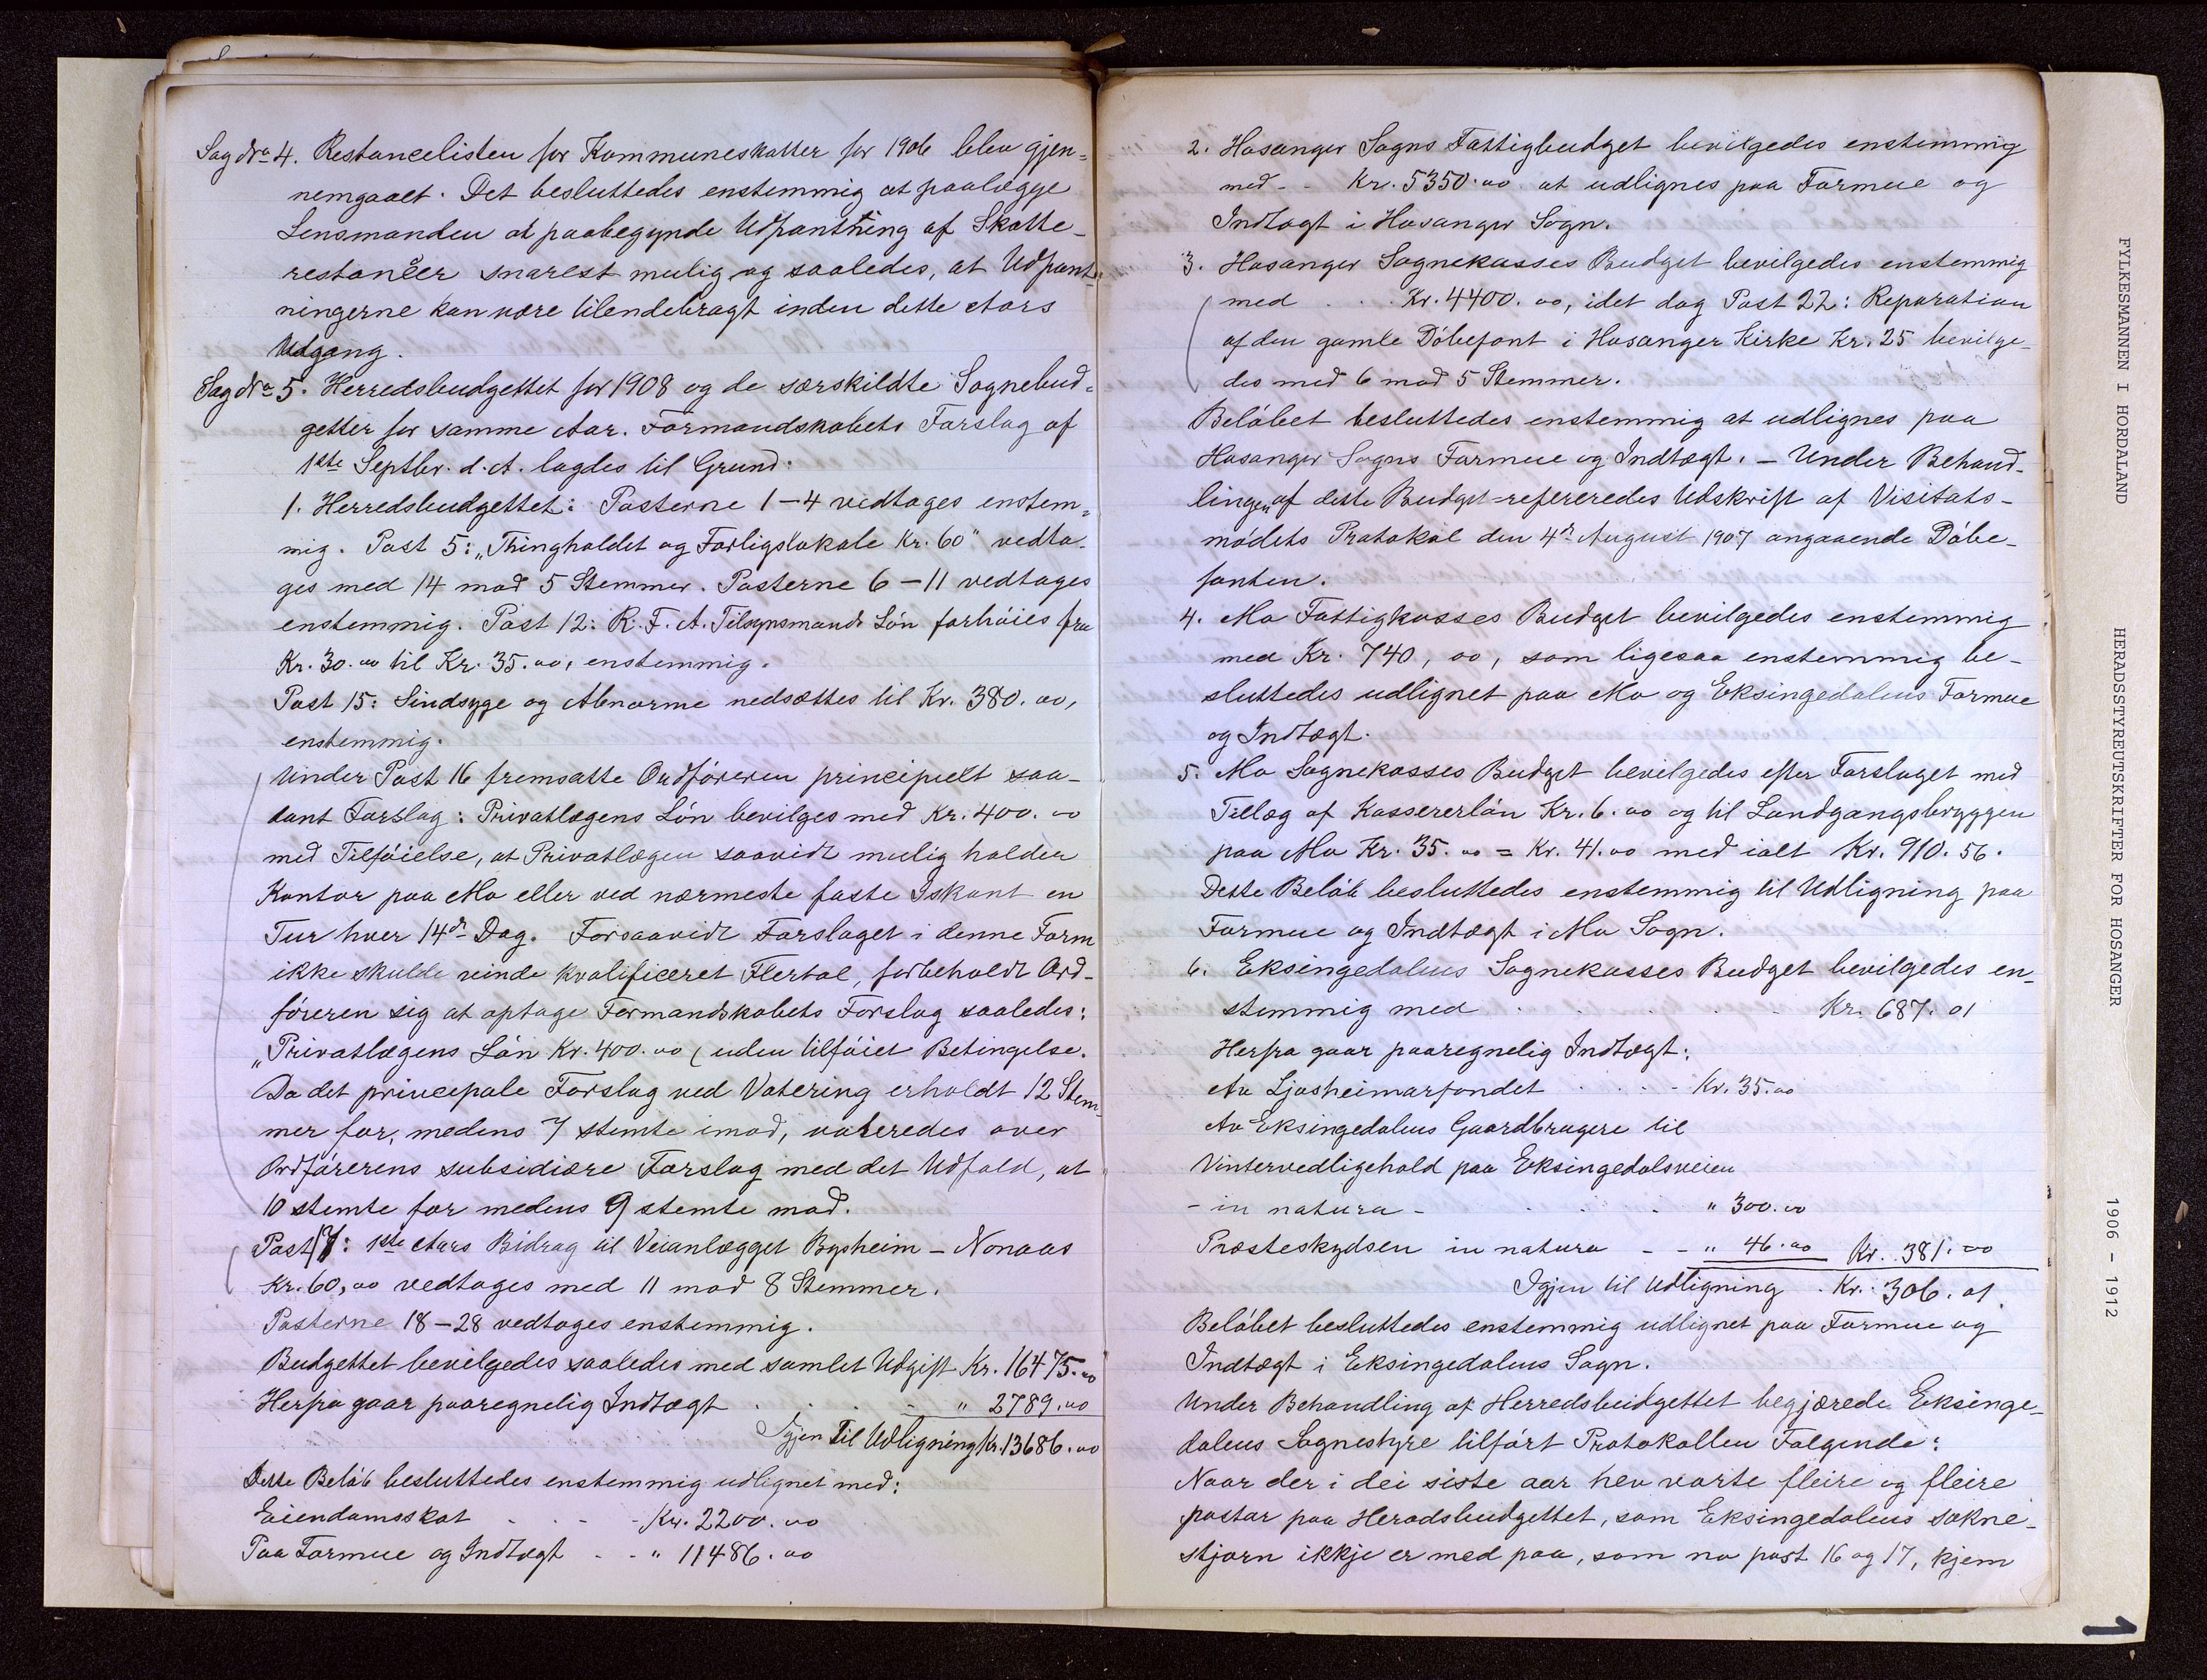 Sag No 4. Restancelisten for Kommuneskatter for 1906 blev gjen-
nemgaaet. Det besluttedes enstemmig at paalægge
Lensmanden at paabegynde Udpantning af Skatte-
restancer snarest mulig og saaledes, at Udpant-
ningerne kan være tilendebragt inden dette Aars
Udgang.
Sag No 5. Herredsbudgettet for 1908 og de særskildte Sognebud-
getter for samme Aar. Formandskabets Forslag af
1ste Septbr. d. A. lagdes til Grund.
1. Herredsbudgettet: Posterne 1-4 vedtages enstem-
mig. Post 5: "Thingholdet og Forligslokale Kr. 60" vedta-
ges med 14 mod 5 Stemmer. Posterne 6-11 vedtages
enstemmig. Post 12: R. F. A. Tilsynsmands Løn forhøies fra
Kr. 30.00 til Kr. 35.00, enstemmig.
Post 15: Sindsyge og Abnorme nedsættes til Kr. 380.00,
enstemmig.
Under Post 16 fremsatte Ordføreren principielt saa-
dant Forslag: Privatlægens Løn bevilges med Kr. 400.00
med Tilføielse, at Privatlægen saavidt mulig holder
Kontor paa Mo eller ved nærmeste faste Iskant en
Tur hver 14de Dag. Forsaavidt Forslaget i denne Form
ikke skulde vinde kvalificeret Flertal, forbeholdt Ord-
føreren sig at optage Formandskabets Forslag saaledes:
"Privatlægens Løn Kr. 400.00 (uden tilføiet Betingelse.
Da det principale Forslag ved Votering erholdt 12 Stem-
mer for, medens 7 stemte imod, voteredes over
Ordførerens subsidiære Forslag med det Udfald, at
10 stemte for medens 9 stemte mod.
Post 17: 1ste Aars Bidrag til Veianlægget Bysheim - Nonaas
Kr. 60,00 vedtages med 11 mod 8 Stemmer.
Posterne 18-28 vedtages enstemmig.
Budgettet bevilgedes saaledes med samlet Udgift Kr. 16475.00
Herfra gaar paaregnelig Indtægt . . . " 2789.00
Igjen til Udligning Kr. 13686.00
Dette Beløb besluttedes enstemmig udlignet med:
Eiendomsskat - - - Kr. 2200.00
Paa Formue og Indtægt - - " 11486.00
2. Hosanger Sogns Fattigbudget bevilgedes enstemmig
med - - Kr. 5350.00 at udlignes paa Formue og
Indtægt i Hosanger Sogn.
3. Hosanger Sognekasses Budget bevilgedes enstemmig
med . . . Kr. 4400.00, idet dog Post 22: Reparation
af den gamle Døbefont i Hosanger Kirke Kr. 25 bevilge-
des med 6 mod 5 Stemmer.
Beløbet besluttedes enstemmig at udlignes paa
Hosanger Sogns Formue og Indtægt. - Under Behand-
lingen af dette Budget refereredes Udskrift af Visitats-
mødets Protokol den 4de August 1907 angaaende Døbe-
fonten.
4. Mo Fattigkasses Budget bevilgedes enstemmig
med Kr. 740,00, som ligesaa enstemmig be-
sluttedes udlignet paa Mo og Eksingedalens Formue
og Indtægt.
5. Mo Sognekasses Budget bevilgedes efter Forslaget med
Tillæg af Kassererløn Kr. 6.00 og til Landgangsbryggen
paa Mo Kr. 35.00 = Kr. 41.00 med ialt Kr. 910.56.
Dette Beløb besluttedes enstemmig til Udligning paa
Formue og Indtægt i Mo Sogn.
6. Eksingedalens Sognekasses Budget bevilgedes en-
stemmig med . . . . - Kr. 687.01
Herfra gaar paaregnelig Indtægt:
Av Ljosheimarfondet . . . - Kr. 35.00
Av Eksingedalens Gaardbrugere til
Vintervedligehold paa Eksingedalsveien
- in natura - . . . " 300.00
Præsteskydsen in natura - - " 46.00 Kr. 381.00
Igjen til Udligning . Kr. 306.01
Beløbet besluttedes enstemmig udlignet paa Formue og
Indtægt i Eksingedalens Sogn.
Under Behandling af Herredsbudgettet begjærede Eksinge-
dalens Sognestyre tilført Protokollen Følgende:
Naar der i dei siste aar hev vorte fleire og fleire
postar paa Heradsbudgettet, som Eksingedalens sokne-
stjorn ikkje er med paa, som no post 16 og 17, kjem
FYLKESMANNEN I HORDALAND HERADSSTYREUTSKRIFTER FOR HOSANGER 1906 - 1912
1